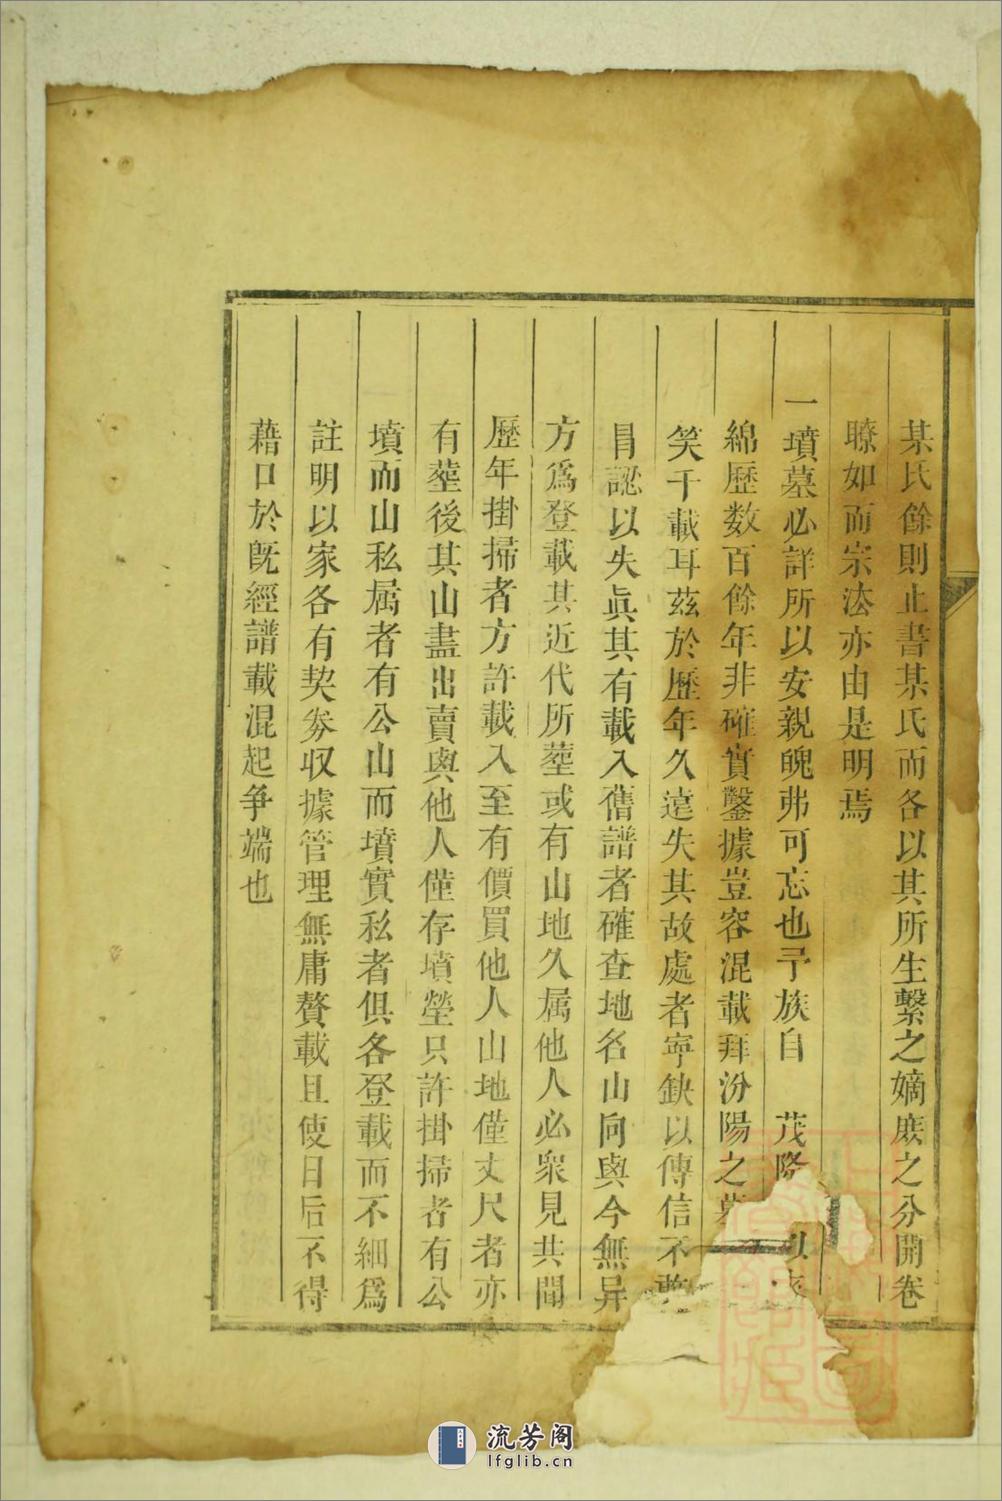 某氏餘則止書某氏而各以其所生繫之嫡庶之分開卷
瞭如而宗法亦由是明焉
一墳墓必詳所以安親魄弗可忘也予族自 茂隆 以來
綿歷数百餘年非確實鑿據豈容混載拜汾陽之墓
笑千載耳茲於歷年久遠失其故處者寧缺以傳信不敢
冐認以失眞其有載入舊譜者確查地名山向與今無异
方爲登載其近代所塟或有山地久属他人必衆見共聞
歷年掛掃者方許載入至有價買他人山地僅丈尺者亦
有塟後其山盡出賣與他人僅存墳塋只許掛掃者有公
墳而山私属者有公山而墳實私者俱各登載而不細爲
註明以家各有契券収據管理無庸贅載且使日后不得
藉口於旣經譜載混起争端也
流芳阁
lfglib.cn